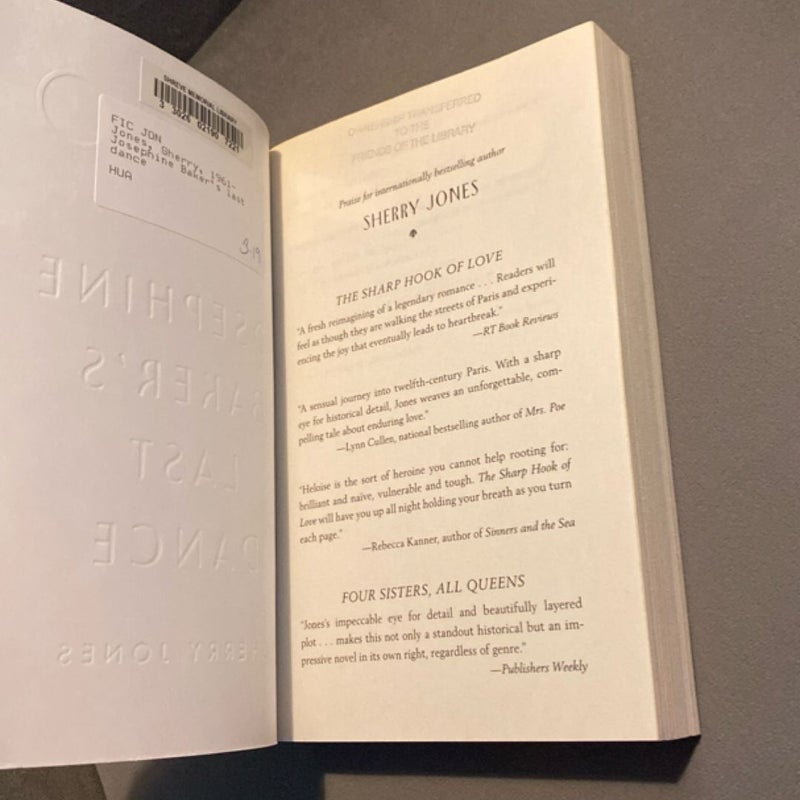 SHREVE MEMORIAL LIBRARY
3 3026 02190 7221
FIC JON
Jones, Sherry, 1961-
Josephine Baker's last
dance
HUA
3.19
JOSEPHINE
BAKER'S
LAST
DANCE
SHERRY JONES
OWNERSHIP TRANSFERRED
TO THE
FRIENDS OF THE LIBRARY
Praise for internationally bestselling author
SHERRY JONES
THE SHARP HOOK OF LOVE
"A fresh reimagining of a legendary romance . . . Readers will
feel as though they are walking the streets of Paris and experi-
encing the joy that eventually leads to heartbreak."
—RT Book Reviews
"A sensual journey into twelfth-century Paris. With a sharp
eye for historical detail, Jones weaves an unforgettable, com-
pelling tale about enduring love."
—Lynn Cullen, national bestselling author of Mrs. Poe
"Heloise is the sort of heroine you cannot help rooting for:
brilliant and naïve, vulnerable and tough. The Sharp Hook of
Love will have you up all night holding your breath as you turn
each page."
—Rebecca Kanner, author of Sinners and the Sea
FOUR SISTERS, ALL QUEENS
"Jones's impeccable eye for detail and beautifully layered
plot . . . makes this not only a standout historical but an im-
pressive novel in its own right, regardless of genre."
—Publishers Weekly